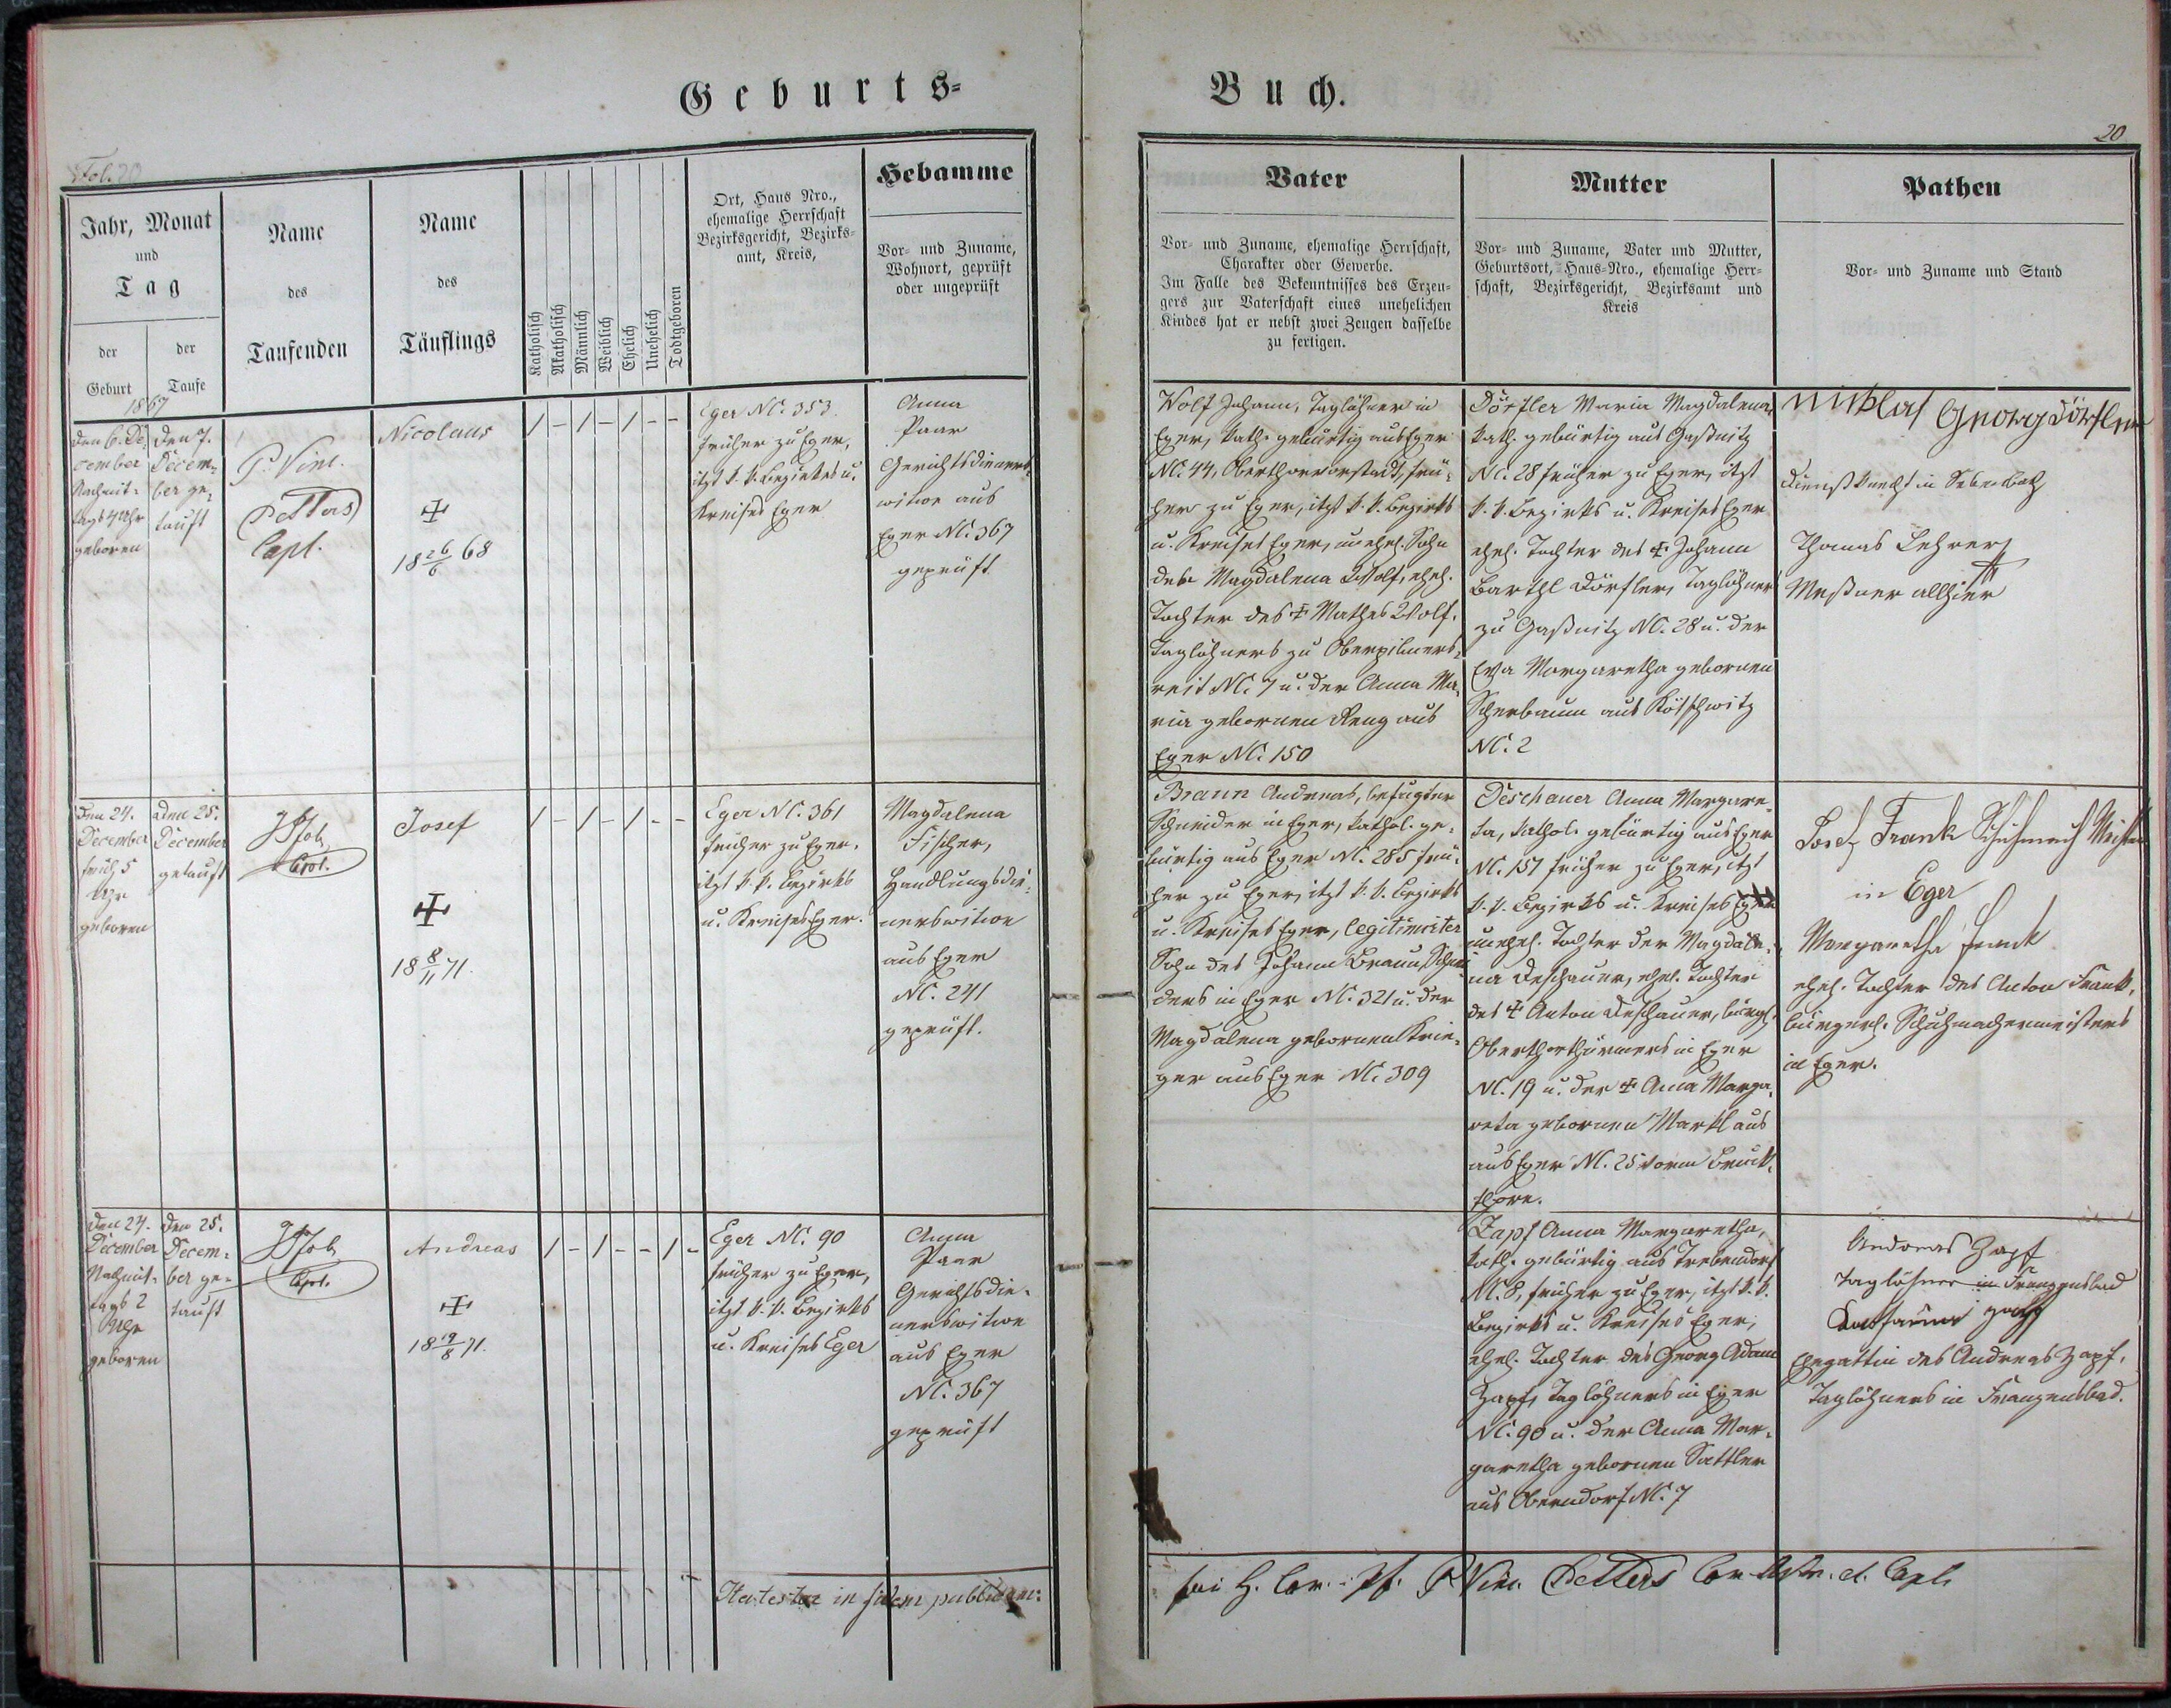 Geburts-
Buch.
Fol. 20
20
Jahr, Monat
und
Tag
der
Geburt
der
Taufe
Name
des
Taufenden
Name
des
Täuflings
Katholisch
Akatholisch
Männlich
Weiblich
Ehelich
Unehelich
Todtgeboren
Ort, Haus Nro.,
ehemalige Herrschaft
Bezirksgericht, Bezirks-
amt, Kreis,
Hebamme
Vor- und Zuname,
Wohnort, geprüft
oder ungeprüft
Vater
Vor- und Zuname, ehemalige Herrschaft,
Charakter oder Gewerbe.
Im Falle des Bekenntnisses des Erzeu-
gers zur Vaterschaft eines unehelichen
Kindes hat er nebst zwei Zeugen dasselbe
zu fertigen.
Mutter
Vor- und Zuname, Vater und Mutter,
Geburtsort, Haus-Nro., ehemalige Herr-
schaft, Bezirksgericht, Bezirksamt und
Kreis
Pathen
Vor- und Zuname und Stand
1867
den 6. De-
cember
Nachmit-
tags 4 Uhr
geboren
den 7.
Decem-
ber ge-
tauft
P. Vinc.
Petters
Capl.
Nicolaus
18 26/6 68
/ - / - / - -
Eger NC. 353
früher zu Eger,
itzt k. k. Bezirkes u.
Kreises Eger
Anna
Paar
Gerichtsdieners-
witwe aus
Eger NC. 367
geprüft
Wolf Johann, Taglöhner in
Eger, kath. gebürtig aus Eger
NC. 44, Oberthorvorstadt, frü-
her zu Eger, itzt k. k. Bezirks
u. Kreises Eger, unehel. Sohn
der Magdalena Wolf, ehel.
Tochter des ✝ Mathes Wolf,
Taglöhners zu Oberpilmers-
reit NC. 7 u. der Anna Ma-
ria gebornen Reng aus
Eger NC. 150
Dörfler Maria Magdalena,
kath. gebürtig aus Gaßnitz
NC. 28 früher zu Eger, itzt
k. k. Bezirks u. Kreises Eger
ehel. Tochter des ✝ Johann
Barthl Dörfler, Taglöhners
zu Gaßnitz NC. 28 u. der
Eva Margaretha gebornen
Scherbaum aus Kötschwitz
NC. 2
Nicklas Georg Dörfler
Dienstknecht in Sebenbach
Thomas Lehrer
Meßner allhier
Den 24.
December
früh 5
Uhr
geboren
Den 25.
December
getauft
Capl.
Josef
18 8/11 71.
/ - / - / - -
Eger NC. 361
früher zu Eger,
itzt k. k. Bezirks
u. Kreises Eger.
Magdalena
Fischer,
Handlungsdie-
nerswitwe
aus Eger
NC. 241
geprüft.
Braun Andreas, befugter
Schneider in Eger, kathol. ge-
bürtig aus Eger NC. 285 frü-
her zu Eger, itzt k. k. Bezirks
u. Kreises Eger, legitimirter
Sohn des Johann Braun, Schnei-
ders in Eger NC. 321 u. der
Magdalena gebornen Krie-
ger aus Eger NC. 309
Deschauer Anna Margare-
ta, kathol. gebürtig aus Eger
NC. 157 früher zu Eger, itzt
k. k. Bezirks u. Kreises Eger
unehel. Tochter der Magdale-
na Deschauer, ehel. Tochter
des ✝ Anton Deschauer, bürgl.
Oberthorthürmers in Eger
NC. 19 u. der ✝ Anna Marga-
reta gebornen Markl aus
aus Eger NC. 25 vorm Bruck-
thore.
Josef Frank Schuhmach Meister
in Eger
Margaretha Frank
ehel. Tochter des Anton Frank,
bürgerl. Schuhmachermeisters
in Eger.
Den 24.
December
Nachmit-
tags 2
Uhr
geboren
den 25.
Decem-
ber ge-
tauft
Capl.
Andreas
18 19/8 71.
/ - / - - / -
Eger NC. 90
früher zu Eger,
itzt k. k. Bezirks
u. Kreises Eger
Anna
Paar
Gerichtsdie-
nerswitwe
aus Eger
NC. 367
geprüft
Zapf Anna Margaretha,
kath. gebürtig aus Trebendorf
NC. 8, früher zu Eger, itzt k. k.
Bezirks u. Kreises Eger,
ehel. Tochter des Georg Adam
Zapf, Taglöhners in Eger
NC. 90 u. der Anna Mar-
garetha gebornen Sattler
aus Oberndorf NC. 7
Andreas Zapf
Taglöhner in Franzensbad
Katharina Zapf
Ehegattin des Andreas Zapf,
Taglöhners in Franzensbad.
in fidem publicam:
P. Vinc. Petters Capl.